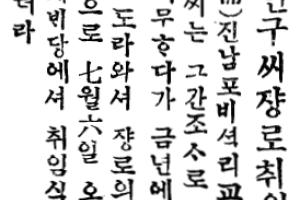 구씨쟝로취임
진남포비석리교
씨는 그간조ᄉᆞ로
무ᄒᆞ다가 금년에
도라와셔 쟝로의
으로 七월六일 오
비당에셔 취임식
더라